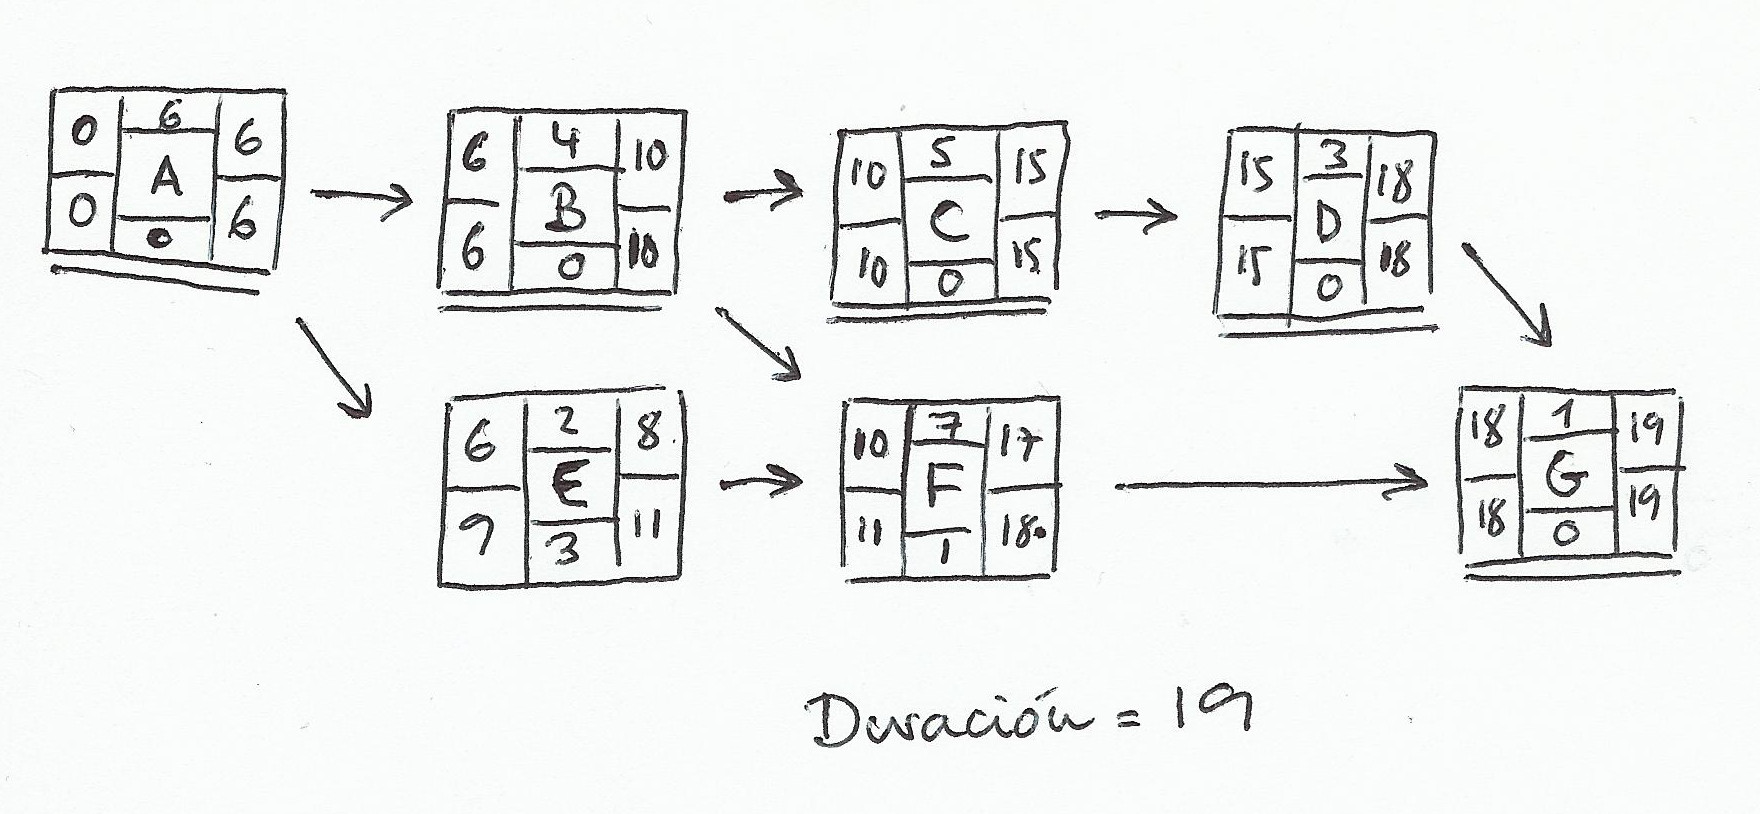 0 6 6
A
0 0 6
6 4 10
B
6 0 10
10 5 15
C
10 0 15
15 3 18
D
15 0 18
6 2 8
E
9 3 11
10 7 17
F
11 1 18
18 1 19
G
18 0 19
Duración = 19